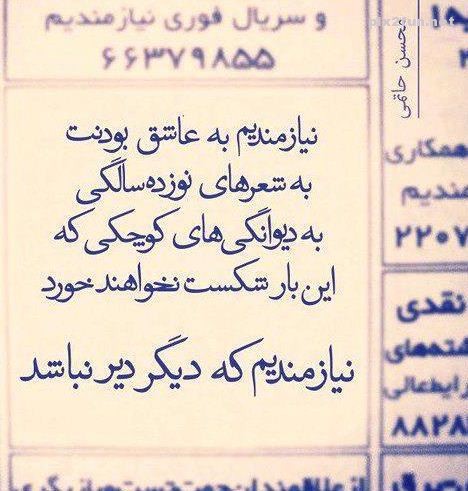 و سریال فوری نیازمندیم
۶۶۳۷۹۸۵۵
نیازمندیم به عاشق بودنت
به شعرهای نوزده‌سالگی
به دیوانگی‌های کوچکی که
این بار شکست نخواهند خورد
نیازمندیم که دیگر دیر نباشد
محسن حاتمی
همکاری
مندیم
۲۲۰۷
نقدی
۸۸۲۸